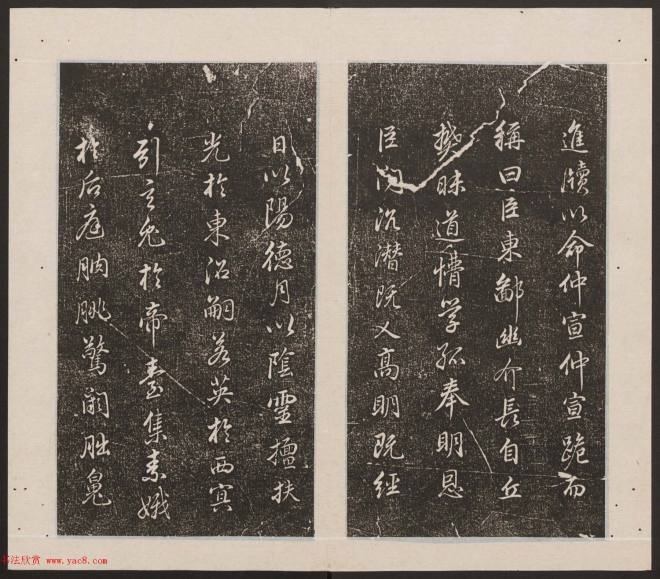 進牘以命仲宣仲宣跪而
稱曰臣東鄙幽介長自丘
樊昧道懵學孤奉明恩
臣聞沉潛既乂高明既經
日以陽德月以陰靈擅扶
光於東沼嗣若英於西冥
引玄兔於帝臺集素娥
於后庭朒朓驚闕朏魄
书法欣赏 www.yac8.com